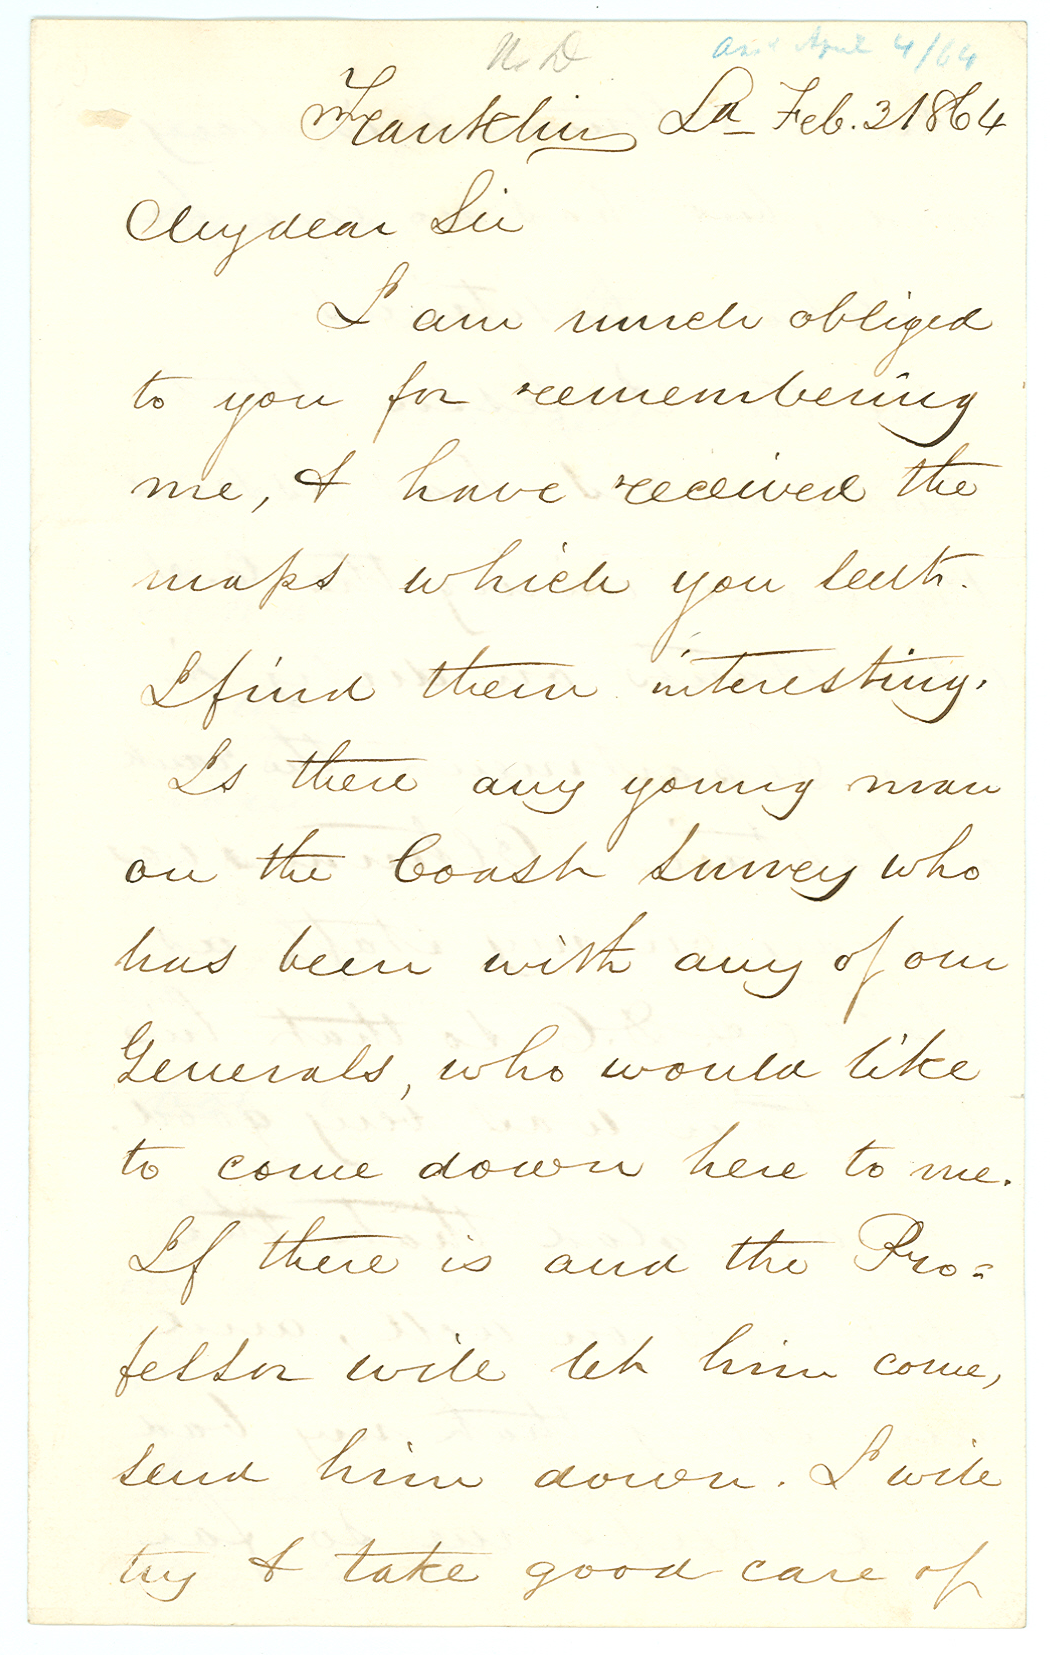 N. D
Ansd April 4/64
Franklin La Feb. 3 1864
My dear Sir
I am much obliged
to you for remembering
me, & have received the
maps which you sent.
I find them interesting.
Is there any young man
on the Coast Survey who
has been with any of our
Generals, who would like
to come down here to me.
If there is and the Pro=
fessor will let him come,
send him down. I will
try & take good care of